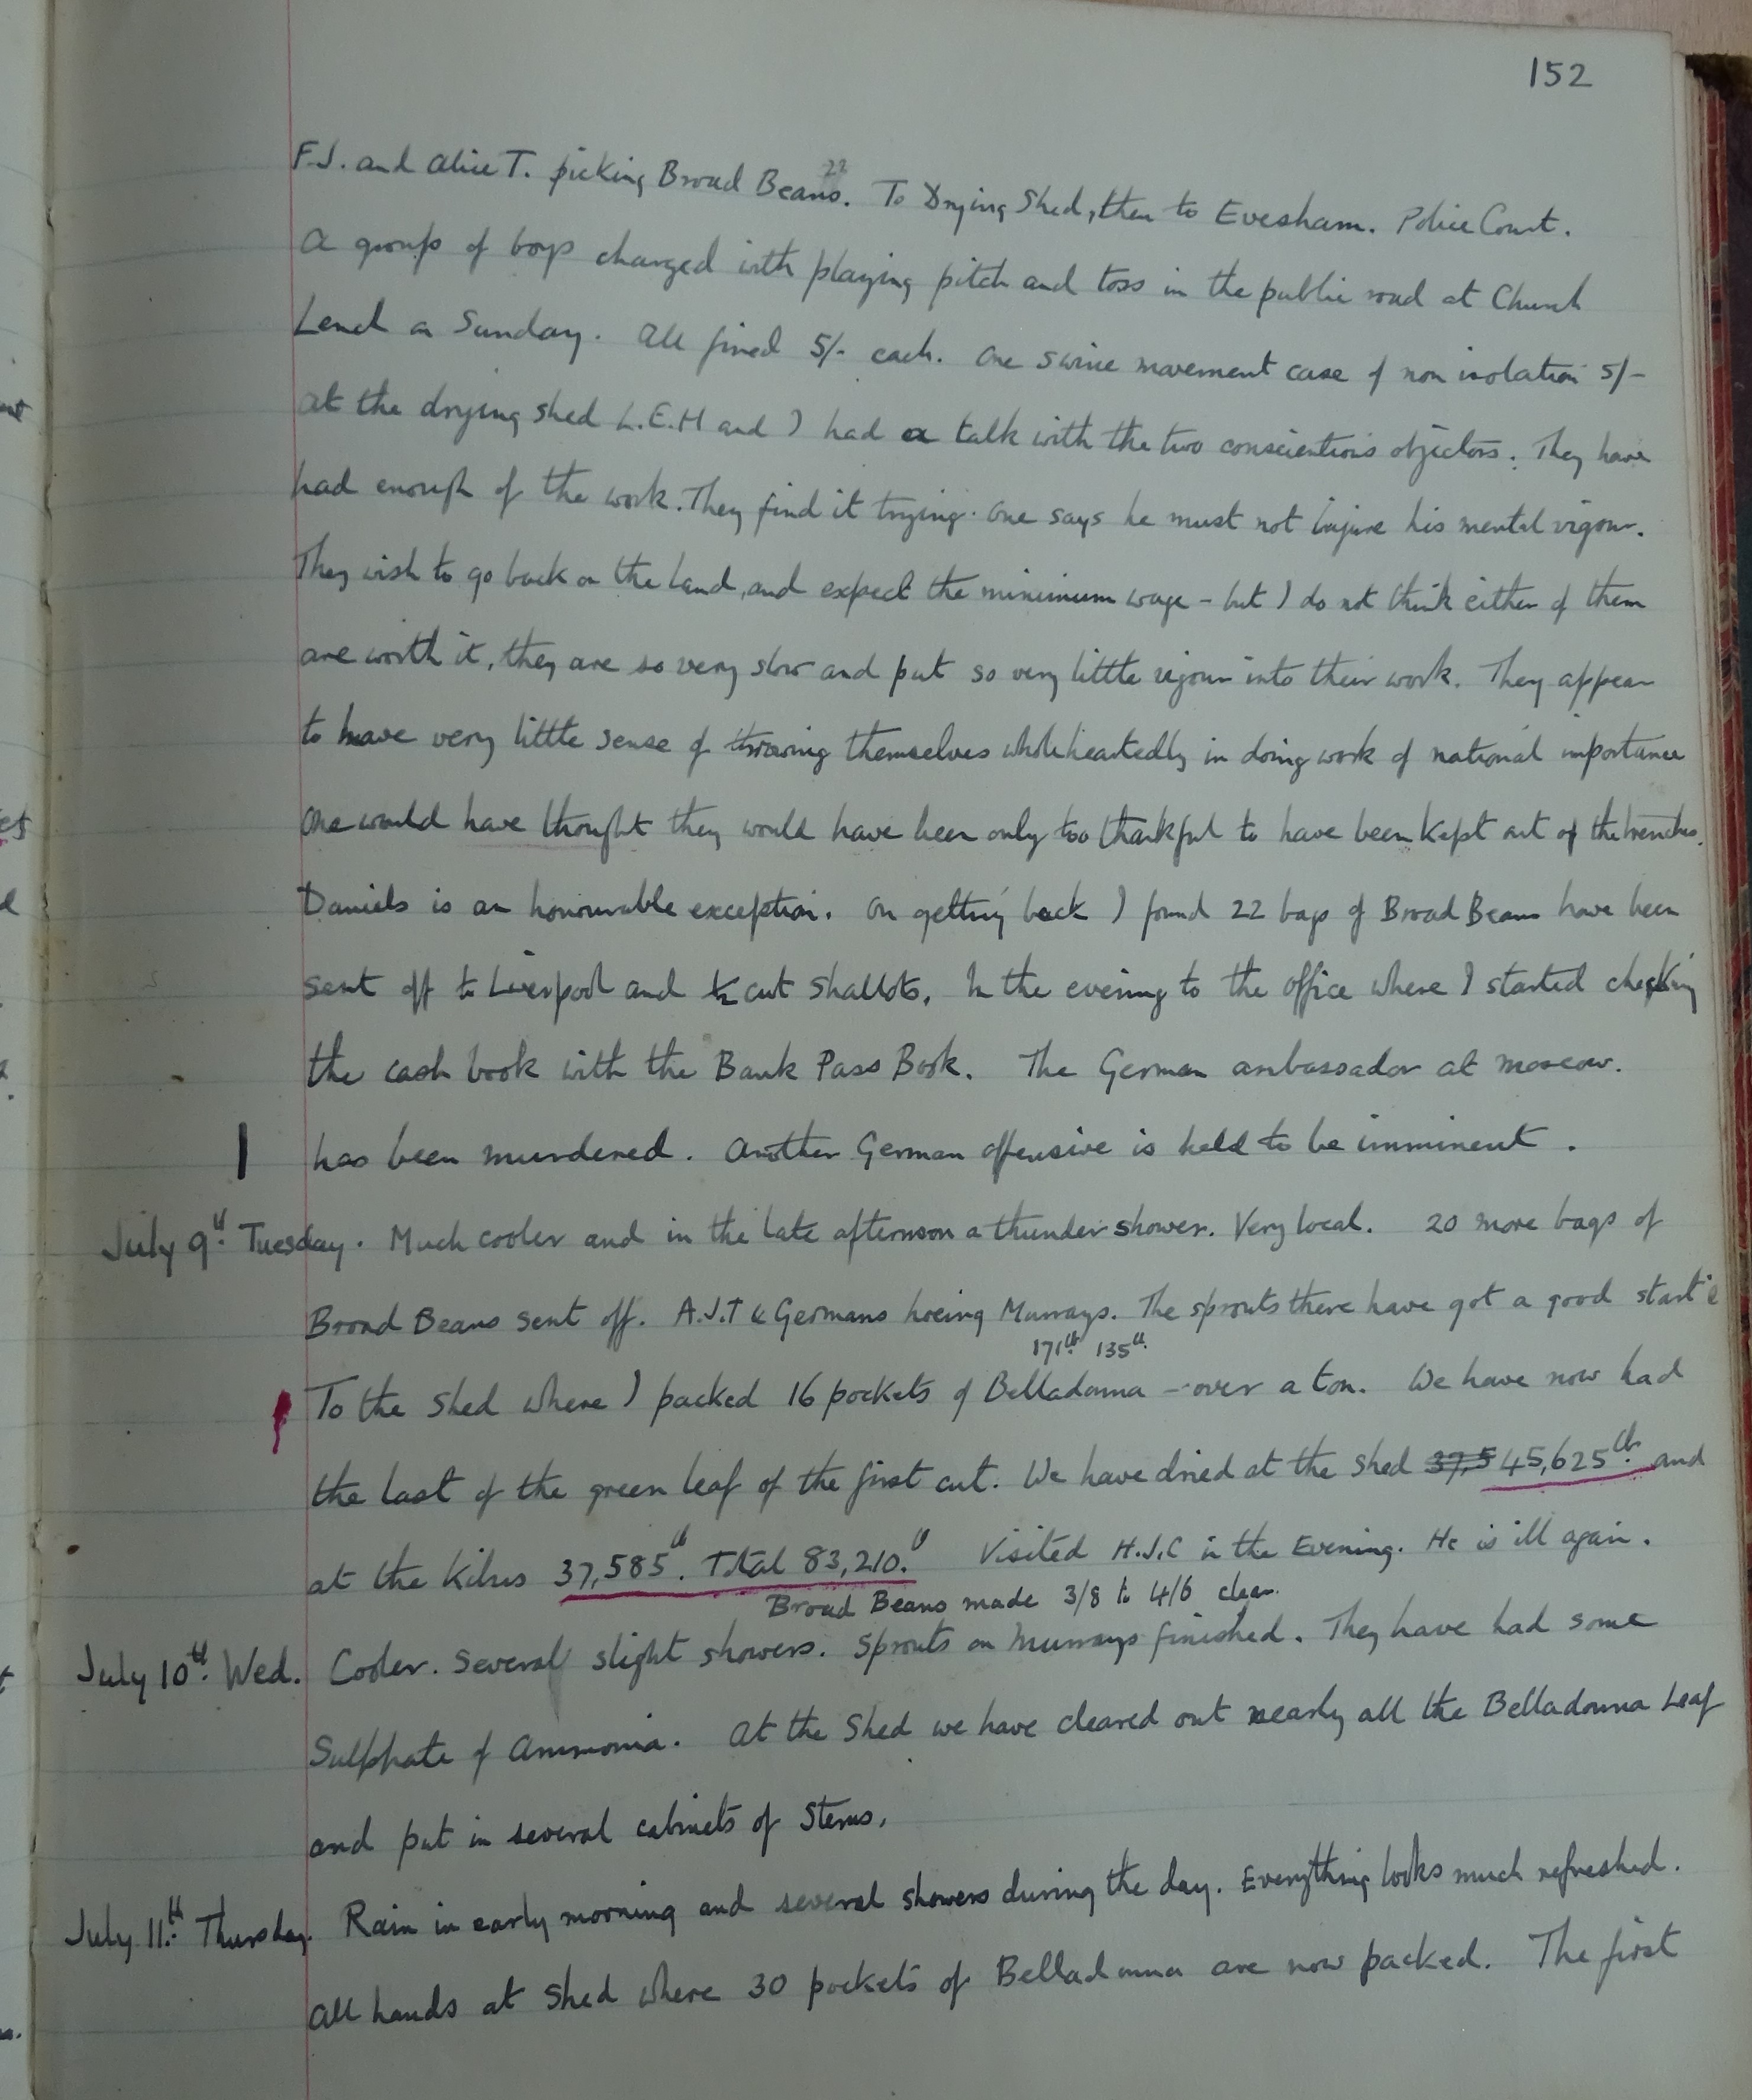 152
F.J. and Alice T. picking Broad Beans. 22 To Drying Shed, then to Evesham. Police Court.
A group of boys charged with playing pitch and toss in the public road at Church
Lench on Sunday. All fined 5/- each. One swine movement case of non isolation 5/-
At the drying shed L.E.H and I had a talk with the two conscientious objectors. They have
had enough of the work. They find it trying. One says he must not injure his mental vigour.
They wish to go back on the land, and expect the minimum wage - but I do not think either of them
are worth it, they are so very slow and put so very little vigour into their work. They appear
to have very little sense of throwing themselves wholeheartedly in doing work of national importance
One would have thought they would have been only too thankful to have been kept out of the trenches.
Daniels is an honourable exception. On getting back I found 22 bags of Broad Beans have been
sent off to Liverpool and ½ cwt shallots. In the evening to the office where I started checking
the cash book with the Bank Pass Book. The German ambassador at Moscow.
has been murdered. Another German offensive is held to be imminent.
July 9th. Tuesday. Much cooler and in the late afternoon a thunder shower. Very local. 20 more bags of
Broad Beans sent off. A.J.T & Germans hoeing Murrays. The sprouts there have got a good start
171lb. 135lb.
To the shed where I packed 16 pockets of Belladonna - over a ton. We have now had
the last of the green leaf of the first cut. We have dried at the shed 37,5 45,625lb. and
at the Kilns 37,585lb. Total 83,210.lb Visited H.J.C in the Evening. He is ill again.
Broad Beans made 3/8 to 4/6 clear.
July 10th. Wed. Cooler. Several slight showers. Sprouts on Murrays finished. They have had some
Sulphate of Ammonia. At the Shed we have cleared out nearly all the Belladonna Leaf
and put in several cabinets of Stems.
July 11th. Thursday. Rain in early morning and several showers during the day. Everything looks much refreshed.
All hands at Shed where 30 pockets of Belladonna are now packed. The first